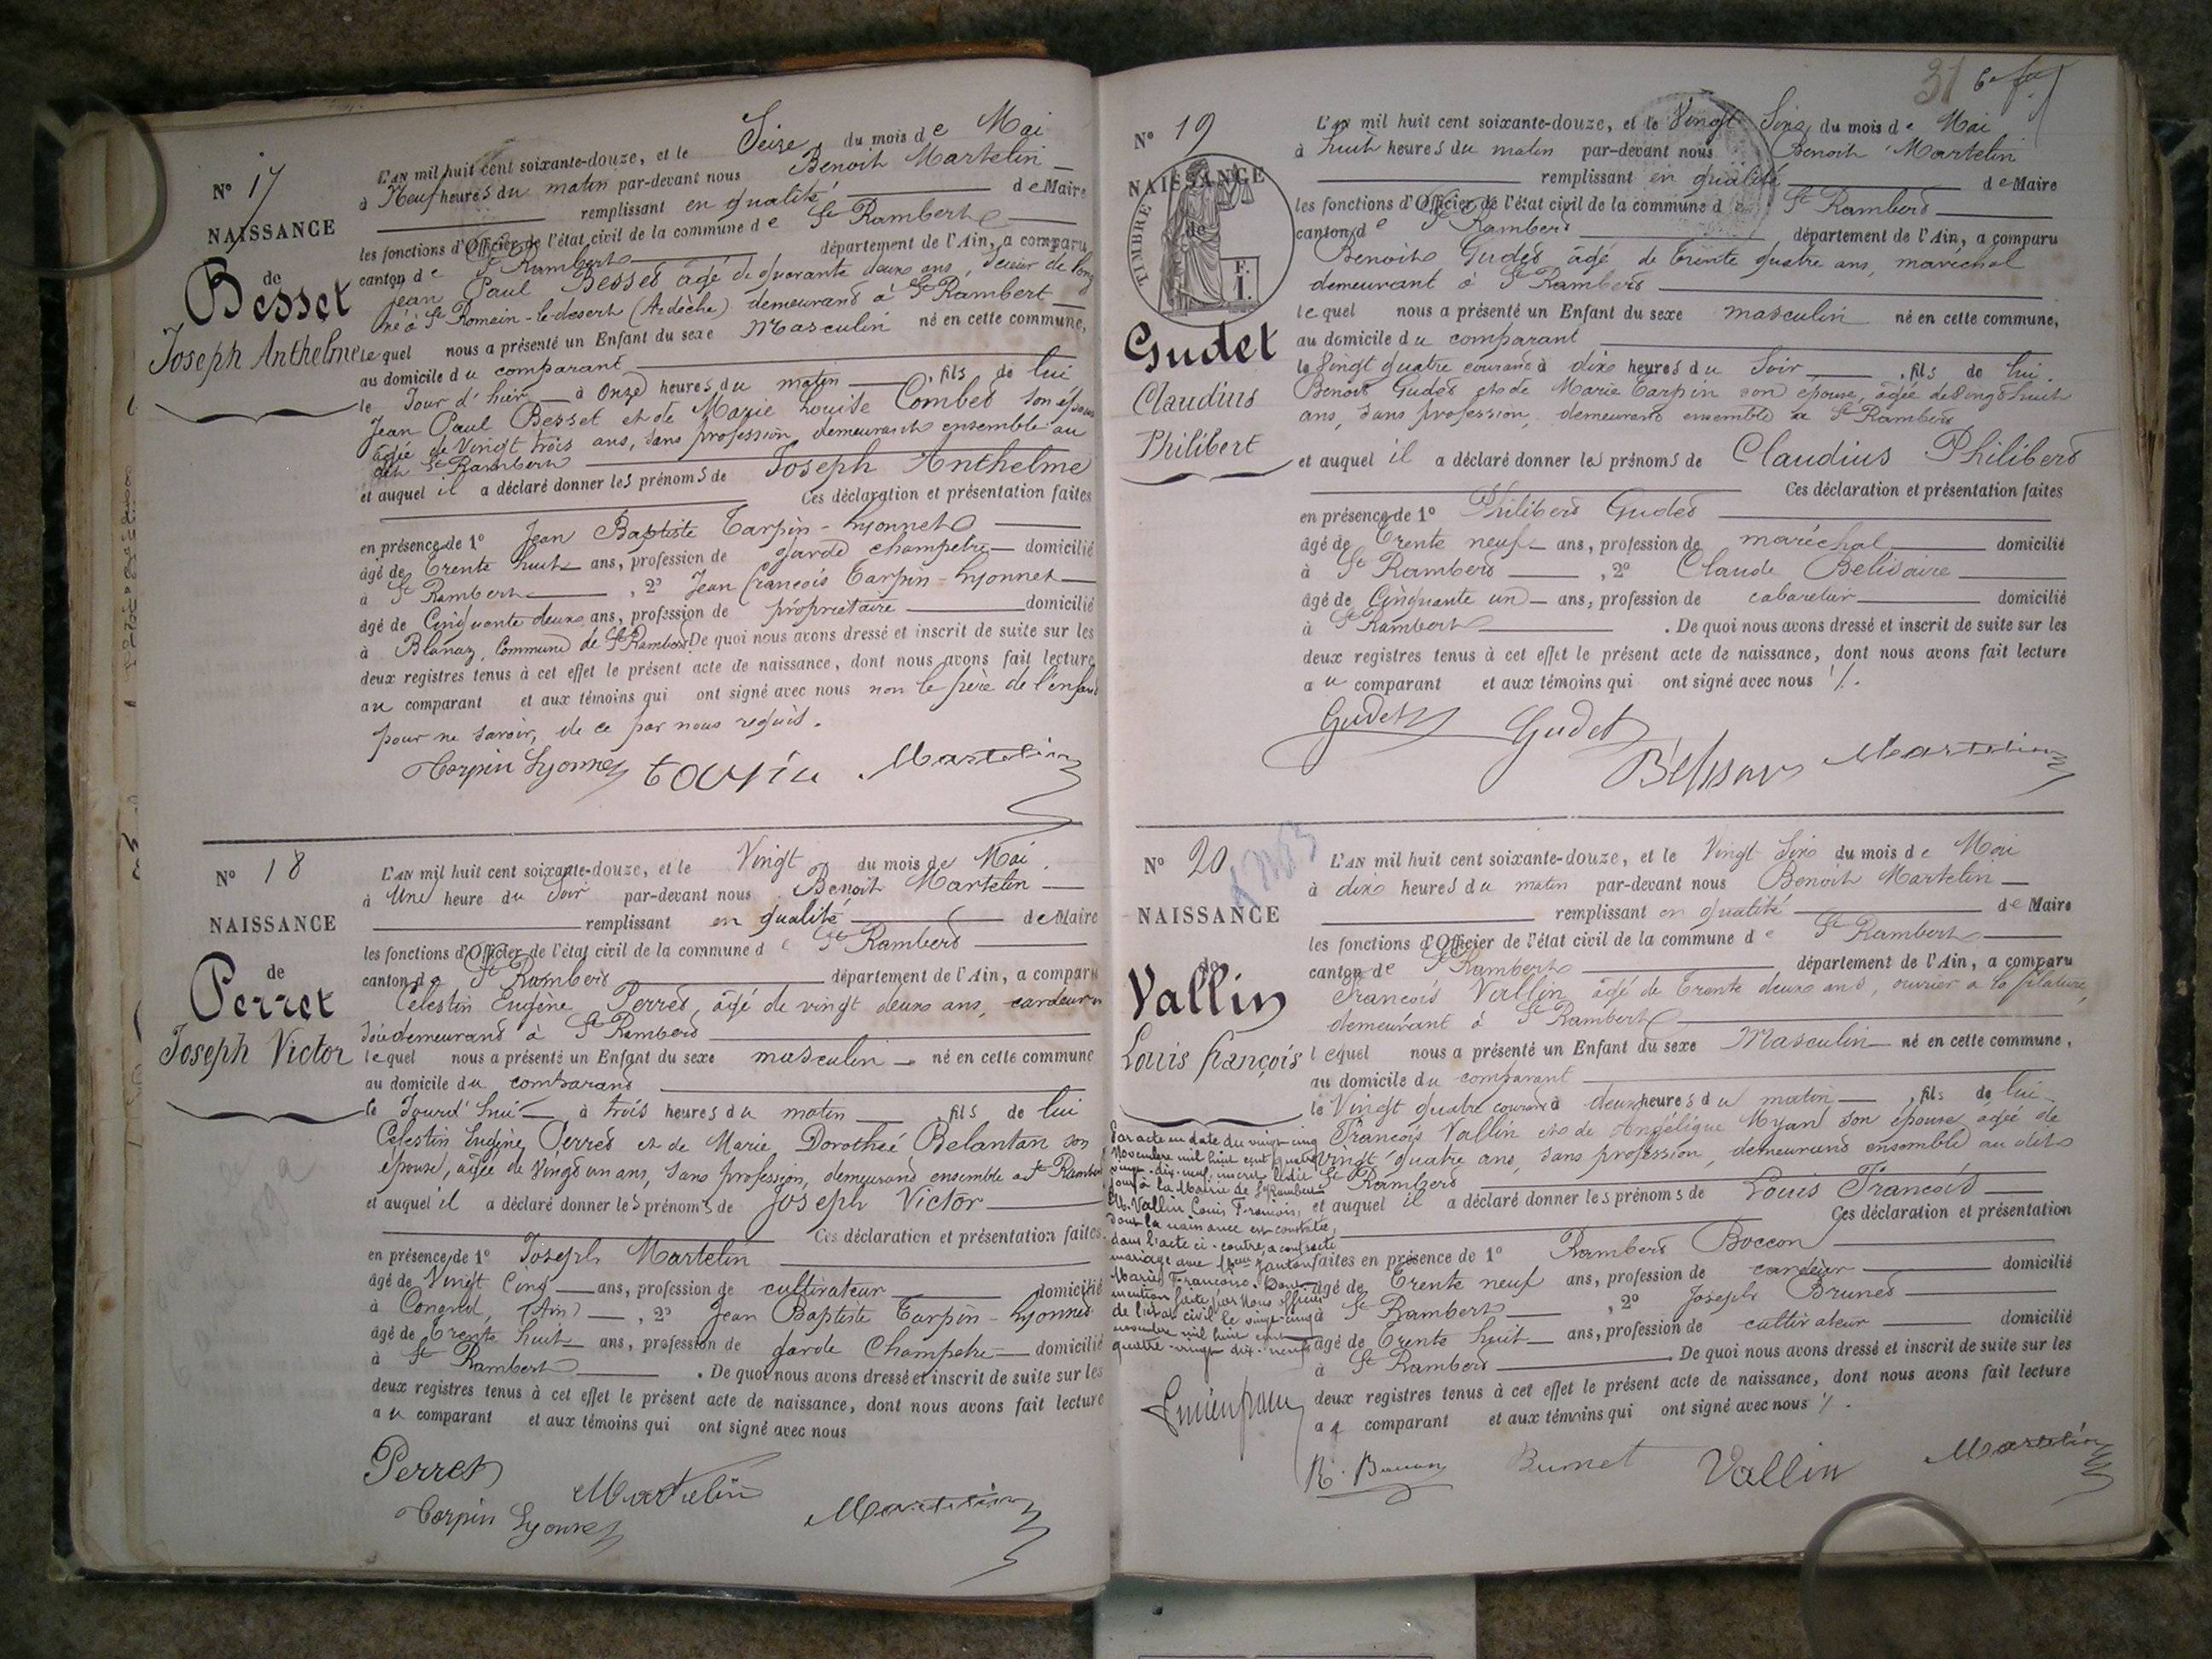 N° 17
NAISSANCE
de
Besset
Joseph Anthelme
L'AN mil huit cent soixante-douze, et le Seize du mois de Mai
à Neuf heures du matin par-devant nous Benoit Martelin
remplissant en qualité de Maire
les fonctions d'Officier de l'état civil de la commune de St Rambert
canton de St Rambert département de l'Ain, a comparu
Jean Paul Besset âgé de quarante deux ans, scieur de long
né à St Romain-le-desert (Ardèche) demeurant à St Rambert
lequel nous a présenté un Enfant du sexe Masculin né en cette commune,
au domicile du comparant
le Jour d'hier à Onze heures du matin, fils de lui
Jean Paul Besset et de Marie Louise Combet son épouse
âgée de Vingt trois ans, sans profession demeurant ensemble au
St Rambert
et auquel il a déclaré donner les prénoms de Joseph Anthelme
Ces déclaration et présentation faites
en présence de 1° Jean Baptiste Tarpin-Lyonnet
âgé de Trente huit ans, profession de garde champetre domicilié
à St Rambert, 2° Jean François Tarpin-Lyonnet
âgé de Cinquante deux ans, profession de propriétaire domicilié
à Blanaz, Commune de St Rambert. De quoi nous avons dressé et inscrit de suite sur les
deux registres tenus à cet effet le présent acte de naissance, dont nous avons fait lecture
au comparant et aux témoins qui ont signé avec nous non le père de l'enfant
pour ne savoir, de ce par nous requis.
Tarpin Lyonnet Martelin
N° 18
NAISSANCE
de
Perret
Joseph Victor
L'AN mil huit cent soixante-douze, et le Vingt du mois de Mai
à Une heure du Soir par-devant nous Benoit Martelin
remplissant en qualité de Maire
les fonctions d'Officier de l'état civil de la commune de St Rambert
canton de St Rambert département de l'Ain, a comparu
Célestin Eugène Perret, âgé de vingt deux ans, cardeur
demeurant à St Rambert
lequel nous a présenté un Enfant du sexe masculin né en cette commune
au domicile du comparant
le Jourd'hui à trois heures du matin, fils de lui
Célestin Eugène Perret et de Marie Dorothée Belantan son
épouse, agée de Vingt un ans, sans profession, demeurant ensemble à St Rambert
et auquel il a déclaré donner les prénoms de Joseph Victor
Ces déclaration et présentation faites
en présence de 1° Joseph Martelin
âgé de Vingt Cinq ans, profession de cultivateur domicilié
à (Ain), 2° Jean Baptiste Tarpin-Lyonnet
âgé de Trente huit ans, profession de garde Champetre domicilié
à St Rambert. De quoi nous avons dressé et inscrit de suite sur les
deux registres tenus à cet effet le présent acte de naissance, dont nous avons fait lecture
au comparant et aux témoins qui ont signé avec nous
Perret
Martelin
Tarpin Lyonnet Martelin
31
N° 19
NAISSANCE
TIMBRE
de
F.
1.
Gudet
Claudius
Philibert
L'AN mil huit cent soixante-douze, et le Vingt Six du mois de Mai
à huit heures du matin par-devant nous Benoit Martelin
remplissant en qualité de Maire
les fonctions d'Officier de l'état civil de la commune de St Rambert
canton de St Rambert département de l'Ain, a comparu
Benoit Gudet âgé de trente quatre ans, maréchal
demeurant à St Rambert
lequel nous a présenté un Enfant du sexe masculin né en cette commune,
au domicile du comparant
le Vingt quatre courant à dix heures du Soir, fils de lui
Benoit Gudet et de Marie Tarpin son épouse, âgée de Vingt huit
ans, sans profession, demeurant ensemble à St Rambert
et auquel il a déclaré donner les prénoms de Claudius Philibert
Ces déclaration et présentation faites
en présence de 1° Philibert Gudet
âgé de Trente neuf ans, profession de maréchal domicilié
à St Rambert, 2° Claude Belisaire
âgé de Cinquante un ans, profession de cabaretier domicilié
à St Rambert. De quoi nous avons dressé et inscrit de suite sur les
deux registres tenus à cet effet le présent acte de naissance, dont nous avons fait lecture
au comparant et aux témoins qui ont signé avec nous
Gudet Gudet
Martelin
N° 20
NAISSANCE
de
Vallin
Louis françois
L'AN mil huit cent soixante-douze, et le Vingt Six du mois de Mai
à dix heures du matin par-devant nous Benoit Martelin
remplissant en qualité de Maire
les fonctions d'Officier de l'état civil de la commune de St Rambert
canton de St Rambert département de l'Ain, a comparu
François Vallin âgé de Trente deux ans, ouvrier à la filature,
demeurant à St Rambert
lequel nous a présenté un Enfant du sexe Masculin né en cette commune,
au domicile du comparant
le Vingt quatre courant à deux heures du matin, fils de lui
François Vallin et de Angélique Myan son épouse agée de
Vingt quatre ans, sans profession, demeurant ensemble au dit
St Rambert
et auquel il a déclaré donner les prénoms de Louis François
Ces déclaration et présentation
faites en présence de 1° Rambert Boccon
âgé de Trente neuf ans, profession de cardeur domicilié
à St Rambert, 2° Joseph Brunet
âgé de Trente huit ans, profession de cultivateur domicilié
à St Rambert. De quoi nous avons dressé et inscrit de suite sur les
deux registres tenus à cet effet le présent acte de naissance, dont nous avons fait lecture
au comparant et aux témoins qui ont signé avec nous
Par acte en date du vingt-cinq
Novembre mil huit cent quatre
vingt-dix-neuf, inscrit ledit
jour à la Mairie de St Rambert
Vallin Louis François,
dont la naissance est constatée
dans l'acte ci-contre, a contracté
mariage avec
Marie Françoise. Dont
mention faite par Nous officier
de l'état civil le vingt-cinq
novembre mil huit cent
quatre-vingt-dix-neuf
Brunet Vallin Martelin